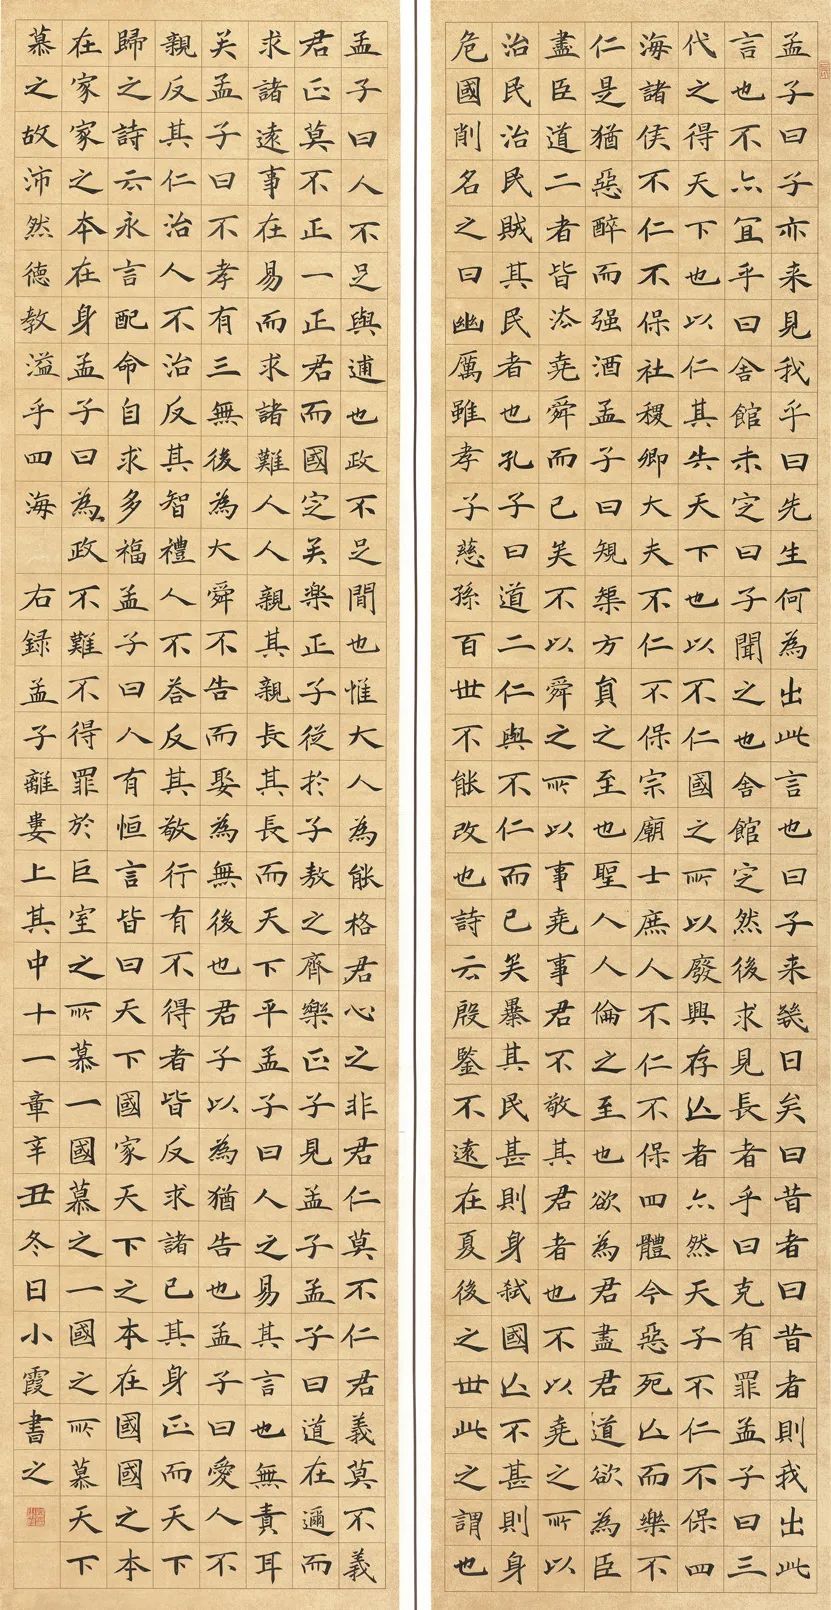 孟子曰子亦来見我乎曰先生何為出此言也曰子来幾日矣曰昔者曰昔者則我出此
言也不亦宜乎曰舍館未定曰子聞之也舍館定然後求見長者乎曰克有罪孟子曰三
代之得天下也以仁其失天下也以不仁國之所以廢興存亡者亦然天子不仁不保四
海諸侯不仁不保社稷卿大夫不仁不保宗廟士庶人不仁不保四體今惡死亡而樂不
仁是猶惡醉而强酒孟子曰規榘方員之至也聖人人倫之至也欲為君盡君道欲為臣
盡臣道二者皆法堯舜而已矣不以舜之所以事堯事君不敬其君者也不以堯之所以
治民治民賊其民者也孔子曰道二仁與不仁而已矣暴其民甚則身弑國亡不甚則身
危國削名之曰幽厲雖孝子慈孫百世不能改也詩云殷鑒不遠在夏後之世此之謂也
孟子曰人不足與適也政不足間也惟大人為能格君心之非君仁莫不仁君義莫不義
君正莫不正一正君而國定矣樂正子從於子敖之齊樂正子見孟子孟子曰道在邇而
求諸遠事在易而求諸難人人親其親長其長而天下平孟子曰人之易其言也無責耳
矣孟子曰不孝有三無後為大舜不告而娶為無後也君子以為猶告也孟子曰愛人不
親反其仁治人不治反其智禮人不答反其敬行有不得者皆反求諸己其身正而天下
歸之詩云永言配命自求多福孟子曰人有恒言皆曰天下國家天下之本在國國之本
在家家之本在身孟子曰為政不難不得罪於巨室之所慕一國慕之一國之所慕天下
慕之故沛然德教溢乎四海 右録孟子離婁上其中十一章辛丑冬日小霞書之